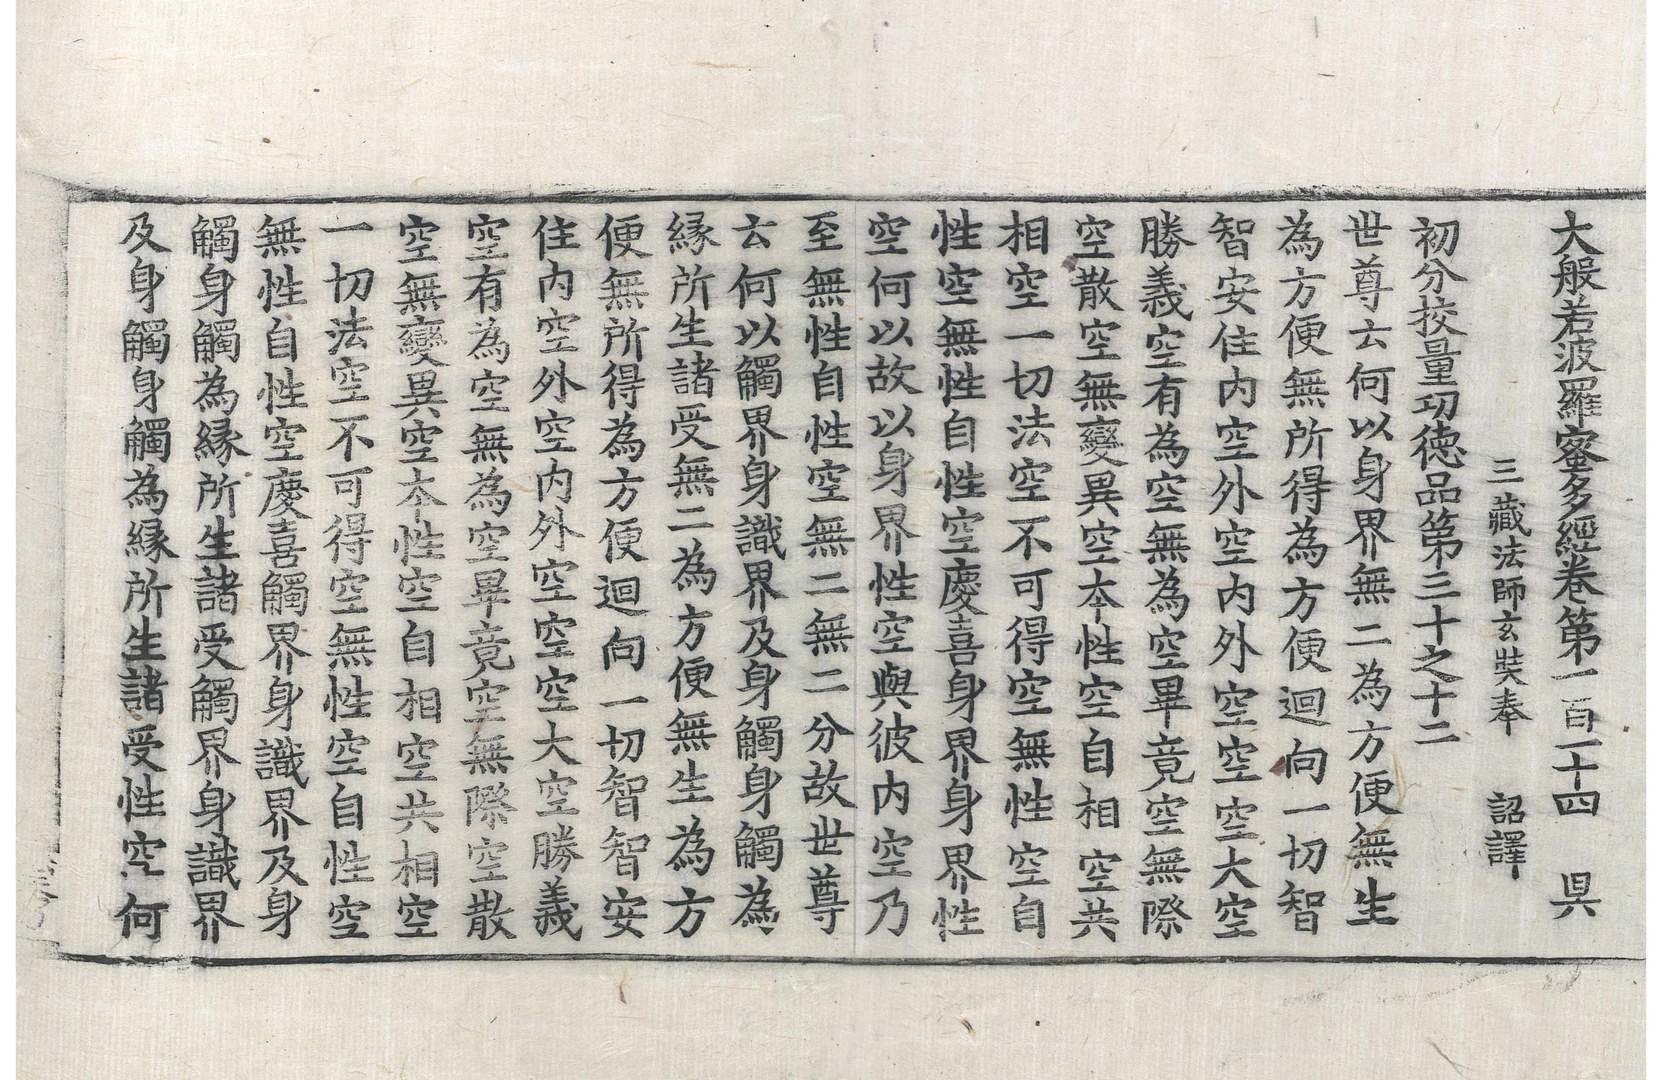 大般若波羅蜜多經卷第一百二十四 昃
三藏法師玄奘奉 詔譯
初分挍量功德品第三十之十二
世尊云何以身界無二為方便無生
為方便無所得為方便迴向一切智
智安住內空外空內外空空空大空
勝義空有為空無為空畢竟空無際
空散空無變異空本性空自相空共
相空一切法空不可得空無性空自
性空無性自性空慶喜身界身界性
空何以故以身界性空與彼內空乃
至無性自性空無二無二分故世尊
云何以觸界身識界及身觸身觸為
緣所生諸受無二為方便無生為方
便無所得為方便迴向一切智智安
住內空外空內外空空空大空勝義
空有為空無為空畢竟空無際空散
空無變異空本性空自相空共相空
一切法空不可得空無性空自性空
無性自性空慶喜觸界身識界及身
觸身觸為緣所生諸受觸界身識界
及身觸身觸為緣所生諸受性空何